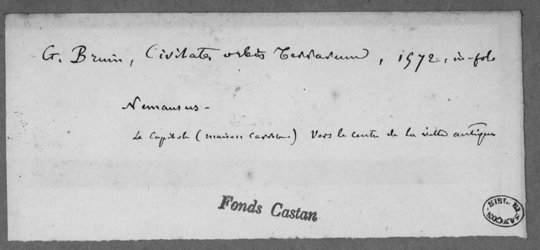 G. Bruin, Civitates orbis Terrarum, 1572, in-folo
Nemausus.
Le Capitole (maison carrée.) Vers le centre de la ville antique
Fonds Castan
BIBL. DE